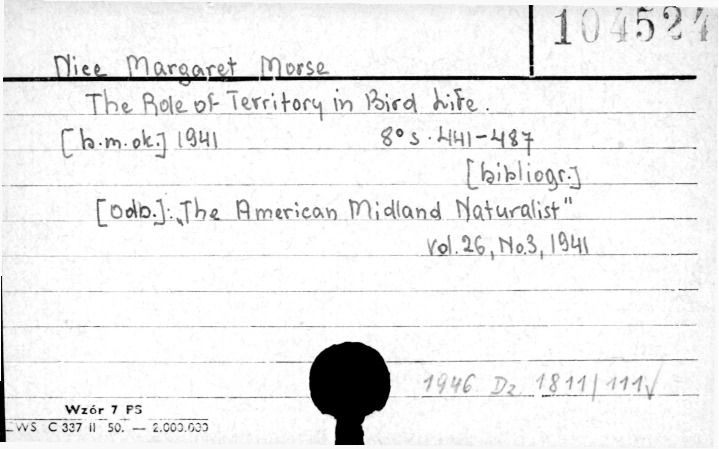 104527
Nice Margaret Morse
The Role of Territory in Bird Life.
[b.m.ok.] 1941 8° s. 441-487
[bibliogr.]
[Odb.]: „The American Midland Naturalist"
vol. 26, No. 3, 1941
1946 Dz 1811/111√
Wzór 7 PS
WS C 337 II 50. — 2.000.000